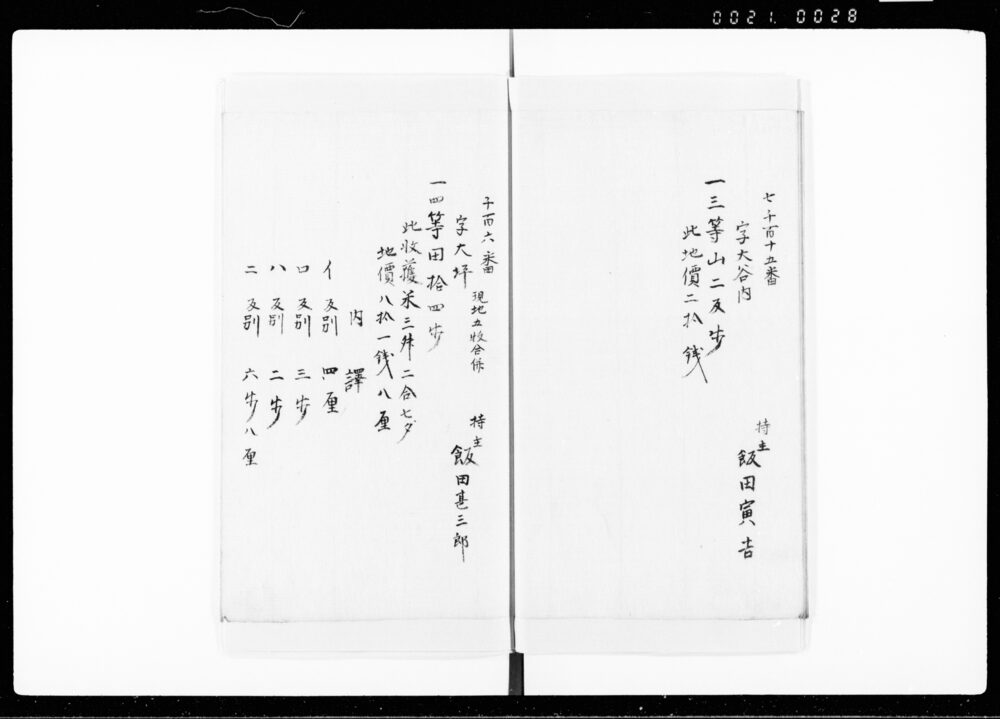 0021. 0028
七千百十五番
字大谷内
一三等山二反歩
此地價二拾銭
持主
飯田寅吉
千百六番 現地五枚合併
字大坪
一四等田拾四歩
此收穫米三舛二合七夕
地價八拾一銭八厘
持主
飯田甚三郎
内譯
イ 反別 四厘
ロ 反別 三歩
ハ 反別 二歩
ニ 反別 六歩八厘